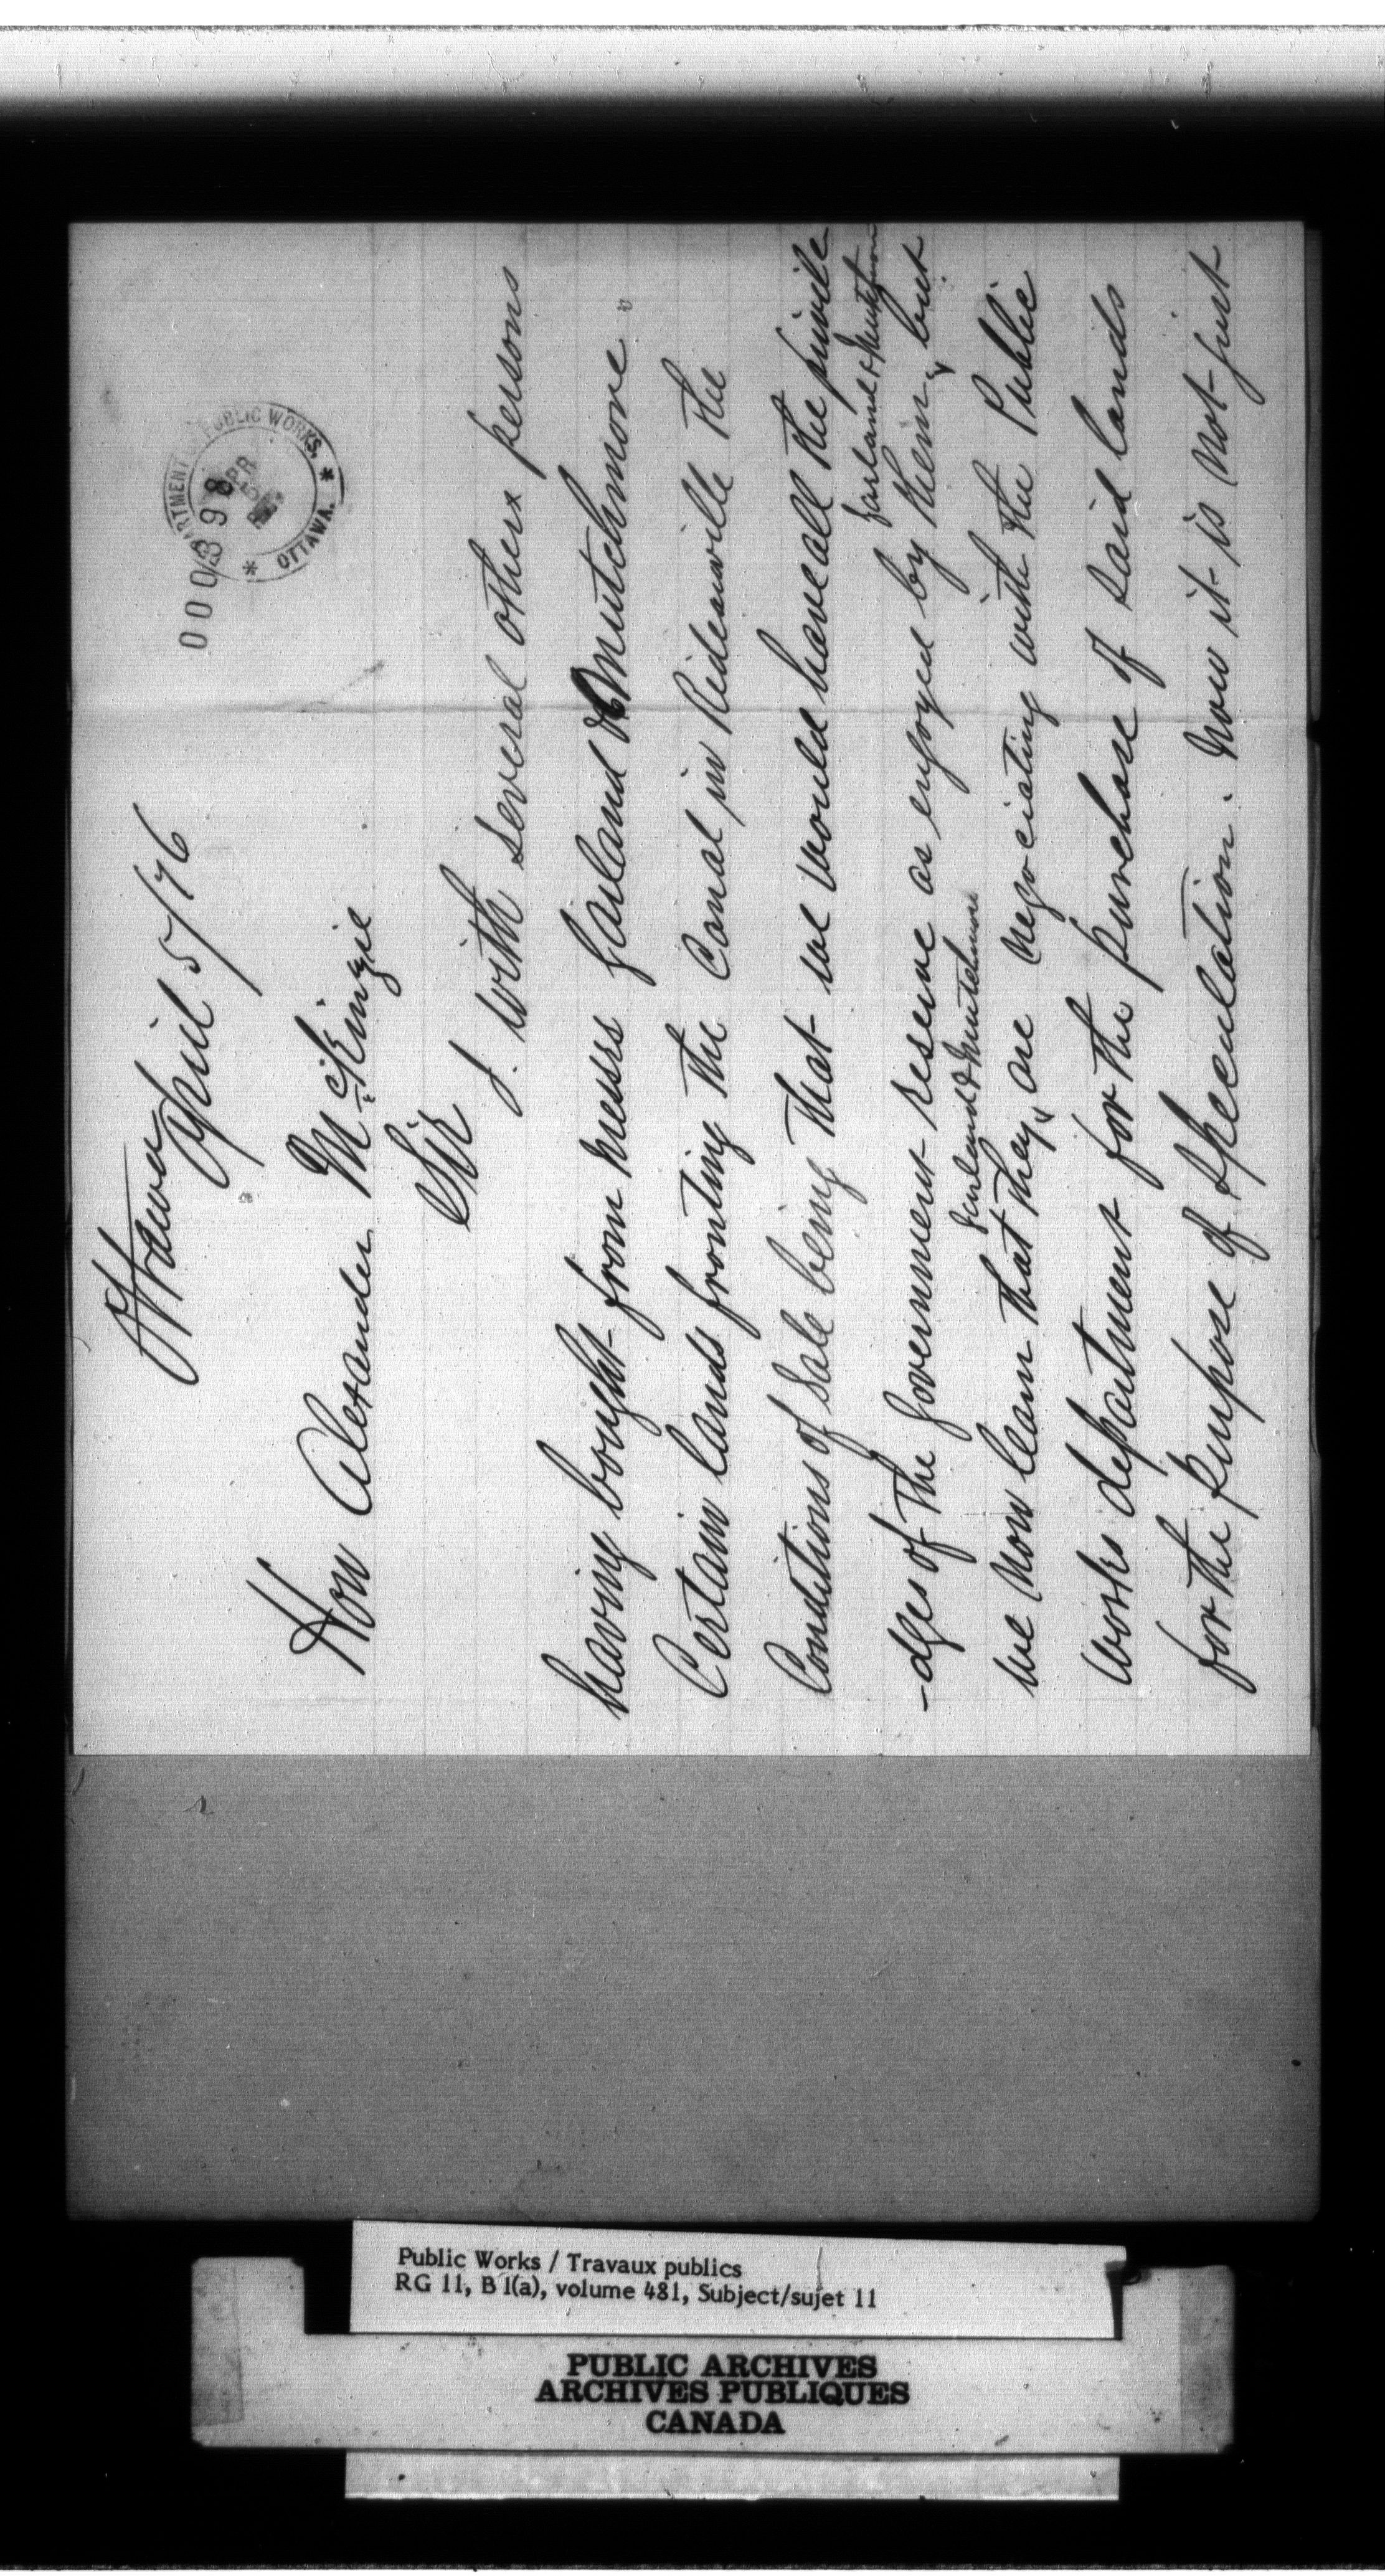 Ottawa
April 5/76
000398
DEPARTMENT OF PUBLIC WORKS,
APR
* OTTAWA. *
Hon Alexander McKinzie
Sir
I. with several others persons
having bought from Messrs Garland & Mutchmore
Certain lands fronting the Canal in Rideauville the
Conditions of Sale being that we would have all the privile
-dges of the Government reserve as enjoyed by them Garland & Mutchmore but
we now learn that they Garland & Mutchmore are negociating with the Public
Works department for the purchase of said lands
for the purpose of Speculation. Now it is not just
Public Works / Travaux publics
RG 11, B 1(a), volume 481, Subject/sujet 11
PUBLIC ARCHIVES
ARCHIVES PUBLIQUES
CANADA